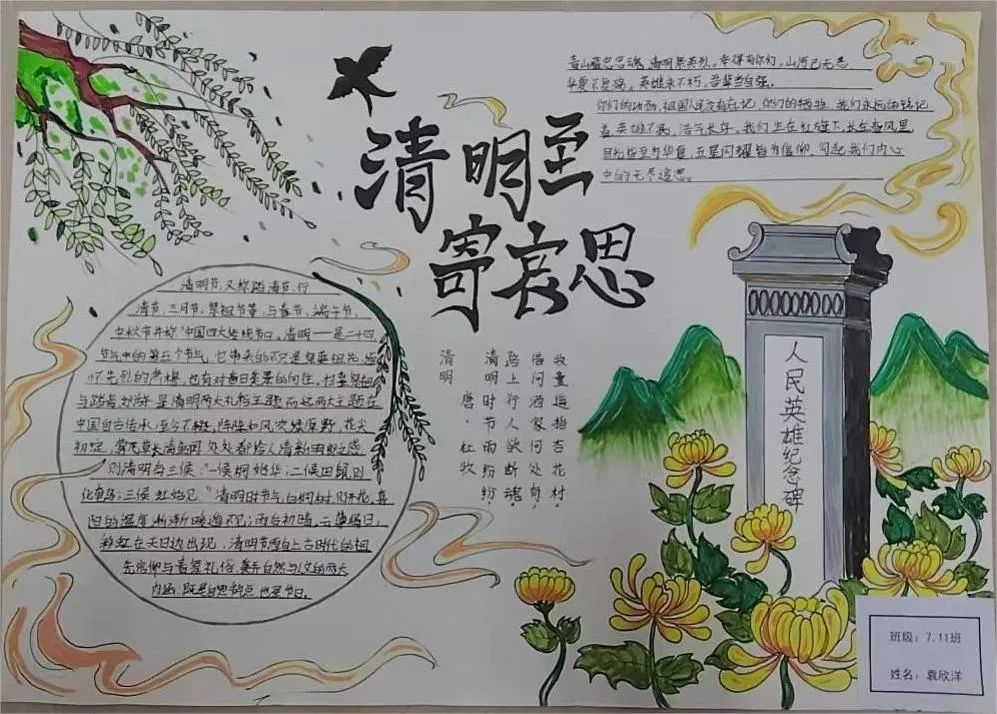 清明至
寄哀思
青山埋忠骨魂，清明祭英烈。幸得有你们，山河已无恙
华夏不复哀，英雄永不朽，吾辈当自强。
你们的功劳，祖国人民没有忘记，你们的牺牲，我们永远铭记
着，英雄不泯，浩气长存。我们生在红旗下，长在春风里
目光所至为华夏，五星闪耀皆为信仰，勾起我们内心
中的无尽追思。
清明节，又称踏清节，行
清节，三月节，祭祖节等，与春节，端午节，
中秋节并称"中国四大传统节日。清明一是二十四
节气中的第五个节气，它带来的不只是祭奠祖先，
怀先烈的肃穆，也有对春日美景的向往。扫墓祭祖
与踏青郊游是清明两大礼俗主题而这两大主题在
中国自古传承，至今不辍，阵阵如风吹绿原野，花尖
初绽，
则清明有三候："一候桐始华；二候田鼠则
化为鴽；三候虹始见。"清明时节，白桐树开花，喜
阳的渐渐；雨后初晴，云薄漏日，
彩虹在天日边出现，清明节源自上古时代的祖
先信仰与春祭礼俗，兼具自然与人文两大
内涵，既是自然节点，也是节日。
清明
唐·杜牧
清明时节雨纷纷，
路上行人欲断魂。
借问酒家何处有，
牧童遥指杏花村。
人民英雄纪念碑
班级：7.11班
姓名：袁欣洋